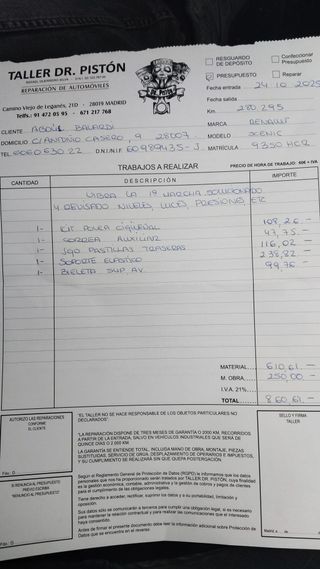 TALLER DR. PISTÓN
REPARACIÓN DE AUTOMÓVILES
Camino Viejo de Leganés, 210 - 28019 MADRID
Telfs.: 91 472 05 95 - 671 217 768
DR. PISTON
RESGUARDO DE DEPÓSITO
Confeccionar Presupuesto
PRESUPUESTO
Reparar
Fecha entrada 24-10-2025
Fecha salida
Km. 280.295
CLIENTE ABDUL BALARDI
MARCA RENAULT
DOMICILIO C/ANTONIO CASERO, 9 28007
MODELO SCENIC
TEL. D.N.I./N.I.F. MATRÍCULA 9350HCR
TRABAJOS A REALIZAR
PRECIO DE HORA DE TRABAJO: 40€ + IVA
CANTIDAD DESCRIPCIÓN IMPORTE
VIBRA LA 1ª MARCHA SOLUCIONADO
Y REVISADO NIVELES, LUCES, PRESIONES, ETC
1- KIT POLEA CIGÜEÑAL 108,26.-
1- CORREA AUXILIAR 47,75.-
1- JGO PASTILLAS TRASERAS 116,02.-
1- SOPORTE ELASTICO 238,82.-
1- BIELETA SUP. AV. 99,76.-
MATERIAL 610,61.-
M. OBRA 250,00.-
I.V.A. 21%
TOTAL 860,61.-
AUTORIZO LAS REPARACIONES
CONFORME
EL CLIENTE
Fdo.: D.
SI RENUNCIA AL PRESUPUESTO
PREVIO ESCRIBA
"RENUNCIO AL PRESUPUESTO"
Fdo.: D.
"EL TALLER NO SE HACE RESPONSABLE DE LOS OBJETOS PARTICULARES NO DECLARADOS".
"LA REPARACIÓN DISPONE DE TRES MESES DE GARANTÍA O 2000 KM. RECORRIDOS A PARTIR DE LA ENTRADA, SALVO EN VEHÍCULOS INDUSTRIALES QUE SERÁ DE QUINCE DÍAS O 2.000 KM.
LA GARANTÍA SE ENTIENDE TOTAL, INCLUIDO MANO DE OBRA, MONTAJE, PIEZAS SUSTITUIDAS, SERVICIO DE GRÚA, DESPLAZAMIENTO DE OPERARIOS E IMPUESTOS, Y SU CUMPLIMIENTO SE REALIZARÁ SIN QUE QUEPA POSPONERSE".
Según el Reglamento General de Protección de Datos (RGPD) le informamos que los datos personales que nos ha proporcionado serán tratados por TALLER DR. PISTÓN, cuya finalidad es la gestión económica, contable, administrativa y la gestión de cobros y pagos de clientes para el cumplimiento de las obligaciones legales.
Tiene derecho a acceder, rectificar, suprimir los datos y a su portabilidad, limitación y oposición.
Sus datos sólo se comunicarán a terceros para cumplir una obligación legal, si es necesario para mantener la relación contractual y para realizar las comunicaciones que el interesado haya consentido.
Antes de firmar el presente documento debe leer la información adicional sobre Protección de Datos que se encuentra en el reverso.
SELLO Y FIRMA
TALLER
Madrid, a